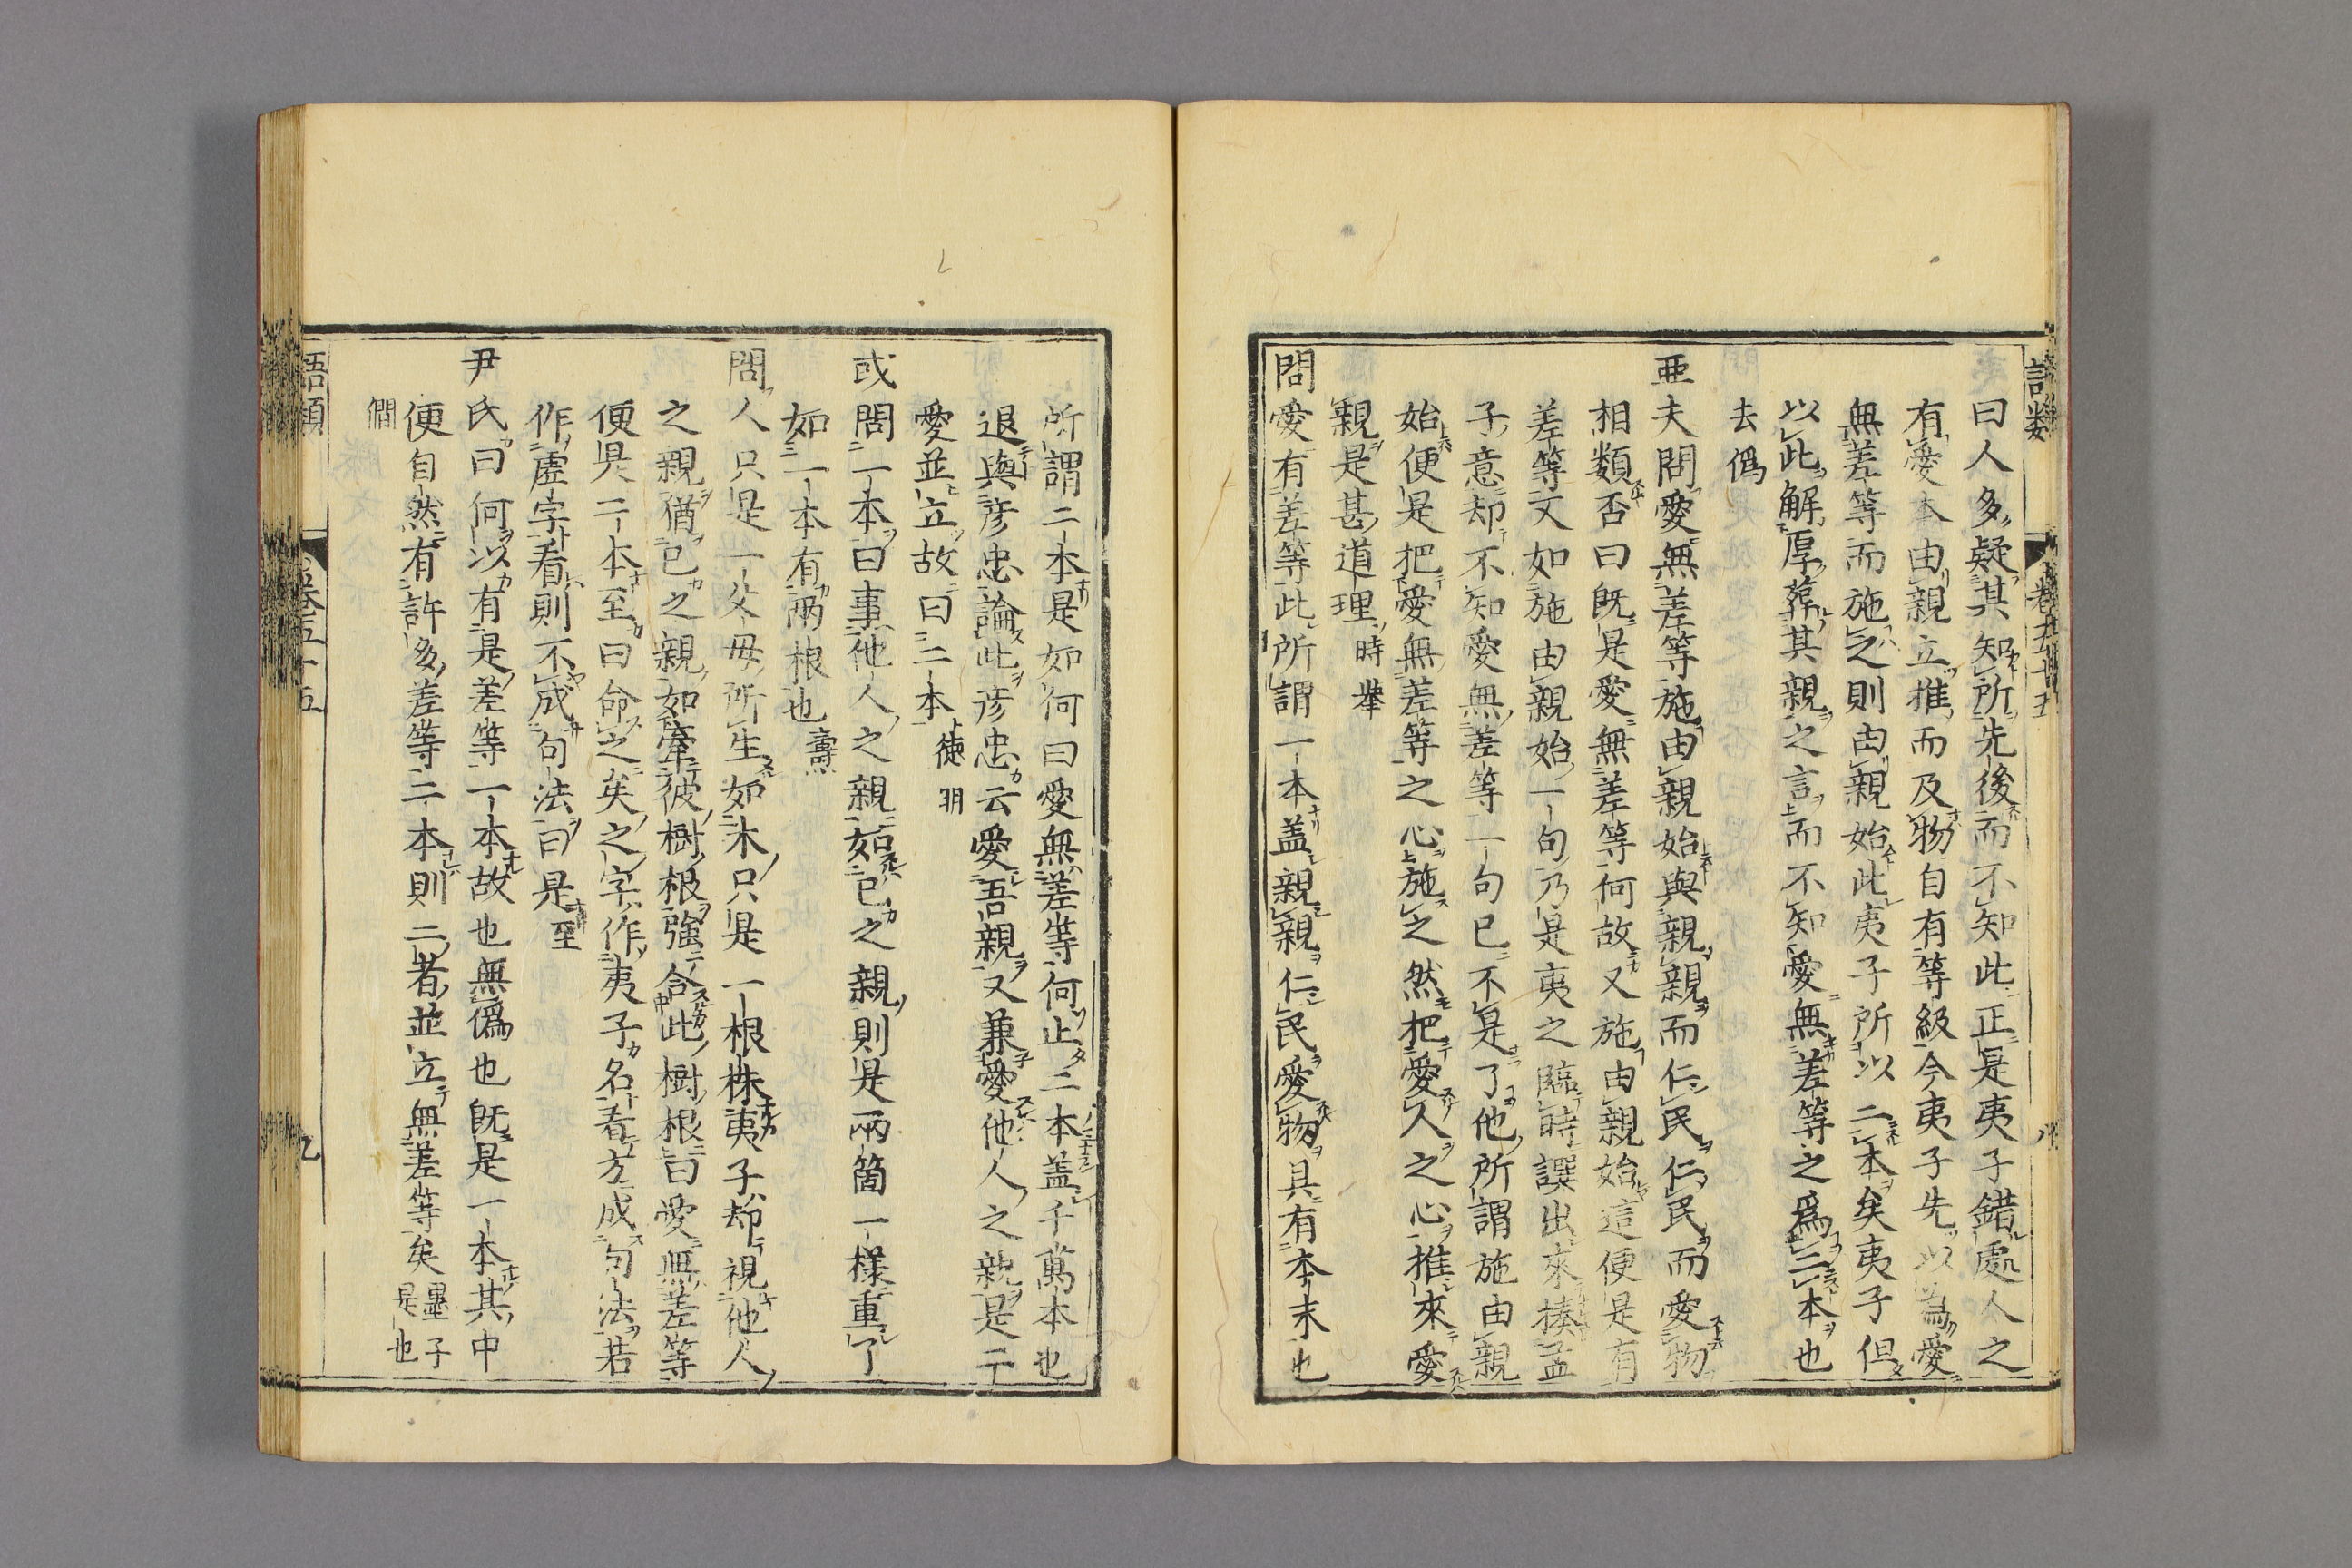 曰人多疑其知所先後而不知此正是夷子錯處人之
有愛本由親立推而及物自有等級今夷子先以為愛
無差等而施之則由親始此夷子所以二本矣夷子但
以此解厚葬其親之言而不知愛無差等之爲二本也
去僞
亜夫問愛無差等施由親始與親親而仁民仁民而愛物
相類否曰既是愛無差等何故又施由親始這便是有
差等又如施由親始一句乃是夷之臨時譔出來湊孟
子意却不知愛無差等一句已不是了他所謂施由親
始便是把愛無差等之心施之然把愛人之心推來愛
親是甚道理時挙
問愛有差等此所謂一本盖親親仁民愛物具有本末也
所謂二本是如何曰愛無差等何止二本盖千萬本也
退與彦忠論此彦忠云愛吾親又兼愛他人之親是二
愛並立故曰二本徳明
或問一本曰事他人之親如己之親則是兩箇一樣重了
如一本有兩根也燾
問人只是一父母所生如木只是一根株夷子却視他人
之親猶己之親如牽彼樹根強合此樹根曰愛無差等
便是二本至曰命之矣之字作夷子名看方成句法若
作虚字看則不成句法曰是至
尹氏曰何以有是差等一本故也無僞也既是一本其中
便自然有許多差等二本則二者並立無差等矣墨子
是也
僩
語類
卷五十五
九